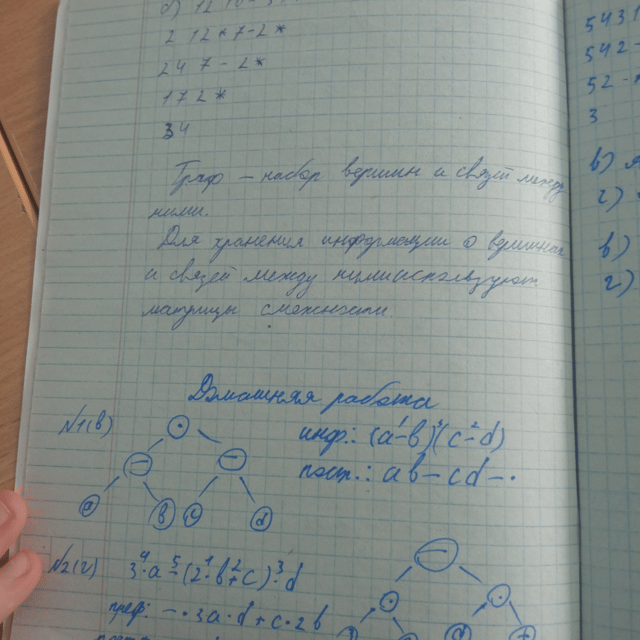 2 12*7-2*
247-2*
172*
34
Граф – набор вершин и связей между
ними.
Для хранения информации о вершинах
и связей между ними используют
матрицы смежности
Домашняя работа
N1(в)
инф.: (a-b)·(c-d)
пост.: ab-cd-·
a
b
c
d
N2(г) 3·a-(2·b+c)·d
преф: -·3a·d+c·2b
543
542-
52-
3
в)
г)
в)
г)